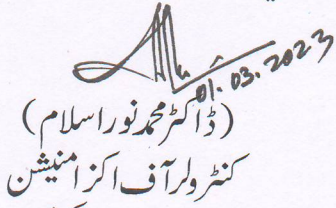 01.03.2023
(ڈاکٹر محمد نور اسلام)
کنٹرولر آف اکزامنیشن